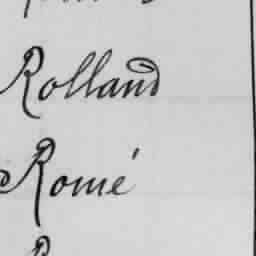 Rolland
Romé